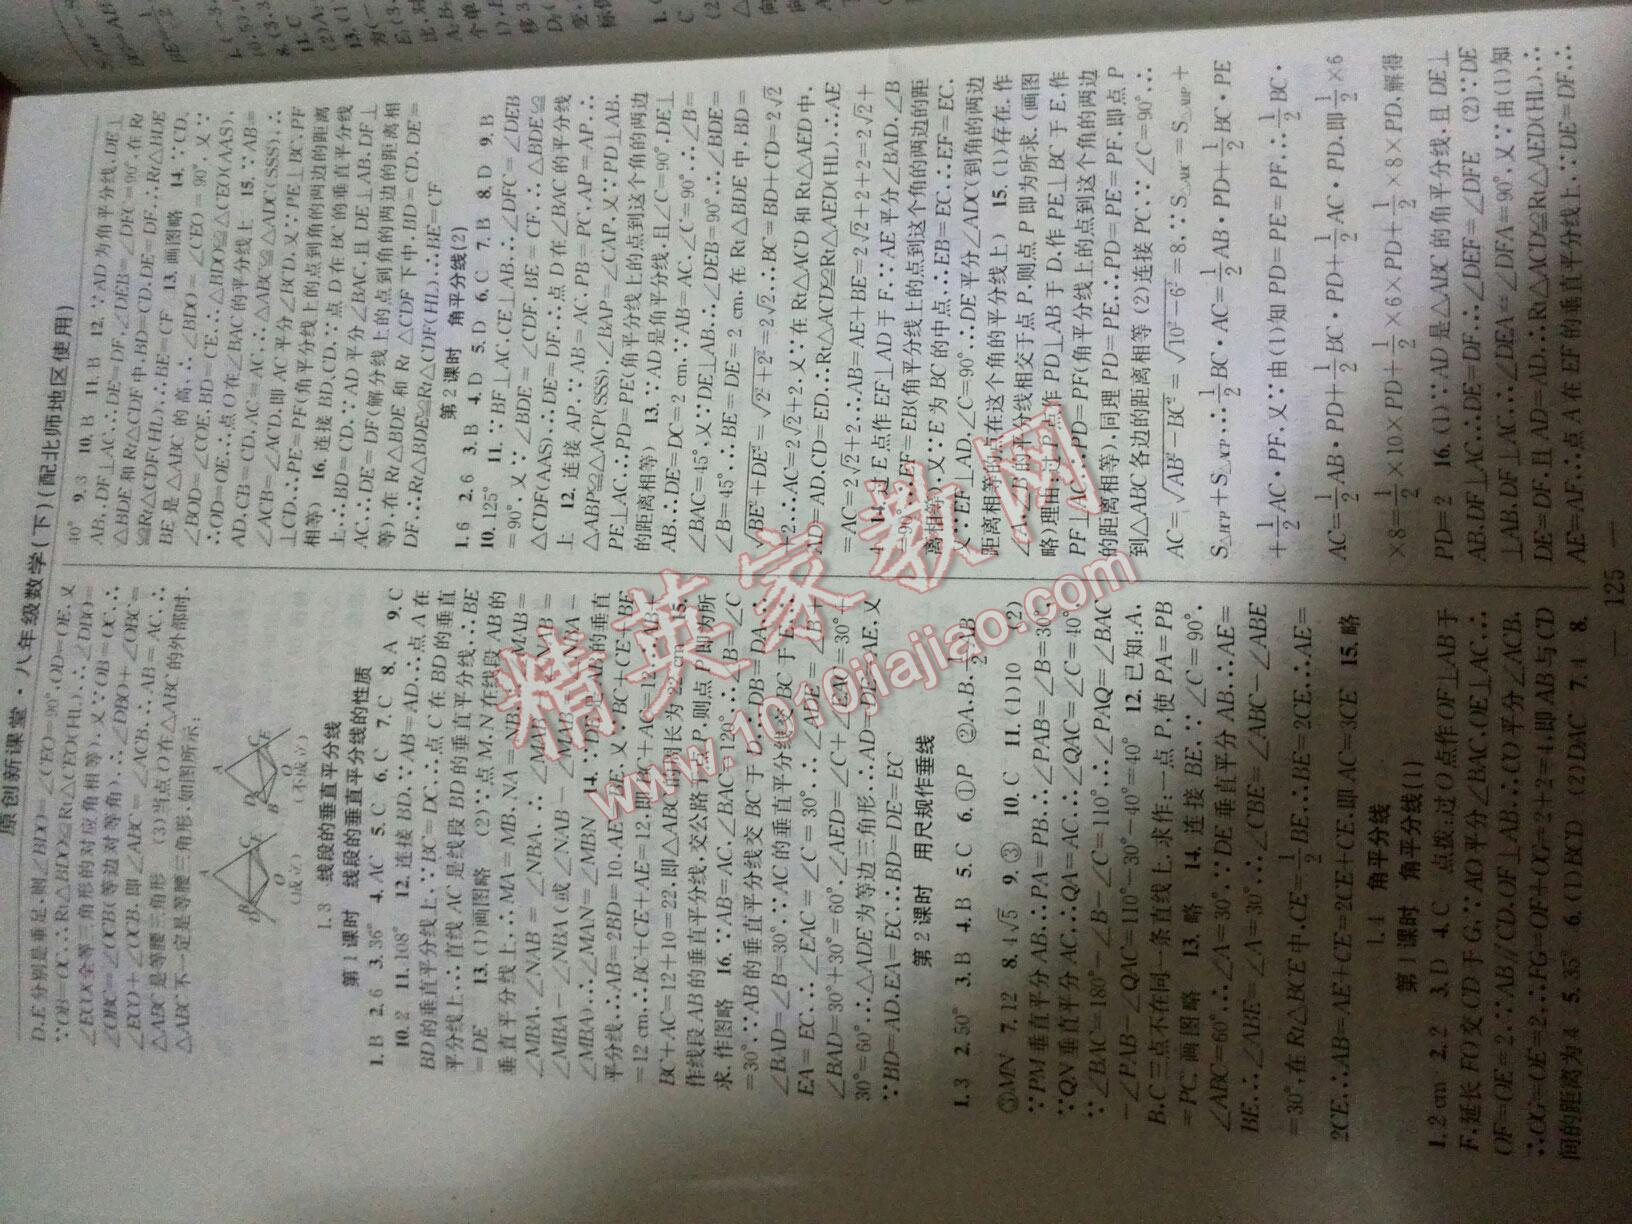 原创新课堂·八年级数学(下)(配北师地区使用)
D、E分别是垂足,则∠BDO=∠CEO=90°,OD=OE,又
∵OB=OC,∴Rt△BDO≌Rt△CEO(HL),∴∠DBO=
∠ECO(全等三角形的对应角相等),又∵OB=OC,∴
∠OBC=∠OCB(等边对等角),∴∠DBO+∠OBC=
∠ECO+∠OCB,即∠ABC=∠ACB,∴AB=AC,∴
△ABC是等腰三角形 (3)当点O在△ABC的外部时,
△ABC不一定是等腰三角形,如图所示:
(成立) (不成立)
1.3 线段的垂直平分线
第1课时 线段的垂直平分线的性质
1.B 2.6 3.36° 4.AC 5.C 6.C 7.C 8.A 9.C
10.2 11.108° 12.连接BD,∵AB=AD,∴点A在
BD的垂直平分线上,∵BC=DC,∴点C在BD的垂直
平分线上,∴直线AC是线段BD的垂直平分线,∴BE
=DE 13.(1)画图略 (2)∵点M、N在线段AB的
垂直平分线上,∴MA=MB,NA=NB,∴∠MAB=
∠MBA,∠NAB=∠NBA,∴∠MAB-∠NAB=
∠MBA-∠NBA(或∠NAB-∠MAB=∠NBA-
∠MBA),∴∠MAN=∠MBN 14.∵DE是AB的垂直
平分线,∴AB=2BD=10,AE=BE,又∵BC+CE+BE
=12 cm,∴BC+CE+AE=12,即BC+AC=12,∴AB+
BC+AC=12+10=22,即△ABC的周长为22 cm 15.
作线段AB的垂直平分线,交公路于点P,则点P即为所
求,作图略 16.∵AB=AC,∠BAC=120°,∴∠B=∠C
=30°,∵AB的垂直平分线交BC于D,∴DB=DA,∴
∠BAD=∠B=30°,∵AC的垂直平分线交BC于E,∴
EA=EC,∴∠EAC=∠C=30°,∴∠ADE=∠B+
∠BAD=30°+30°=60°,∠AED=∠C+∠EAC=30°+
30°=60°,∴△ADE为等边三角形,∴AD=DE=AE,又
∵BD=AD,EA=EC,∴BD=DE=EC
第2课时 用尺规作垂线
1.3 2.50° 3.B 4.B 5.C 6.①P ②A、B,½AB
③MN 7.12 8.4√5 9.③ 10.C 11.(1)10 (2)
∵PM垂直平分AB,∴PA=PB,∴∠PAB=∠B=30°,
∵QN垂直平分AC,∴QA=AC,∴∠QAC=∠C=40°,
∵∠BAC=180°-∠B-∠C=110°,∴∠PAQ=∠BAC
-∠PAB-∠QAC=110°-30°-40°=40° 12.已知:A、
B、C三点不在同一条直线上,求作:一点P,使PA=PB
=PC,画图略 13.略 14.连接BE,∵∠C=90°,
∠ABC=60°,∴∠A=30°,∵DE垂直平分AB,∴AE=
BE,∴∠ABE=∠A=30°,∴∠CBE=∠ABC-∠ABE
=30°,在Rt△BCE中,CE=½BE,∴BE=2CE,∴AE=
2CE,∴AB=AE+CE=2CE+CE,即AC=3CE 15.略
1.4 角平分线
第1课时 角平分线(1)
1.2 cm 2.2 3.D 4.C 点拨:过O点作OF⊥AB于
F,延长FO交CD于G,∵AO平分∠BAC,OE⊥AC,∴
OF=OE=2,∵AB∥CD,OF⊥AB,∴CO平分∠ACB,
∴OG=OE=2,∴FG=OF+OG=2+2=4,即AB与CD
间的距离为4 5.35° 6.(1)BCD (2)DAC 7.4 8.
10° 9.3 10.B 11.B 12.∵AD为角平分线,DE⊥
AB,DF⊥AC,∴DE=DF,∠DEB=∠DFC=90°,在Rt
△BDE和Rt△CDF中,BD=CD,DE=DF,∴Rt△BDE
≌Rt△CDF(HL),∴BE=CF 13.画图略 14.∵CD、
BE是△ABC的高,∴∠BDO=∠CEO=90°,又∵
∠BOD=∠COE,BD=CE,∴△BDO≌△CEO(AAS),
∴OD=OE,∴点O在∠BAC的平分线上 15.∵AB=
AD,CB=CD,AC=AC,∴△ABC≌△ADC(SSS),∴
∠ACB=∠ACD,即AC平分∠BCD,又∵PE⊥BC,PF
⊥CD,∴PE=PF(角平分线上的点到角的两边的距离
相等) 16.连接BD、CD,∵点D在BC的垂直平分线
上,∴BD=CD,∵AD平分∠BAC,且DE⊥AB,DF⊥
AC,∴DE=DF(解分线上的点到角的两边的距离相
等),在Rt△BDE和Rt△CDF下中,BD=CD,DE=
DF,∴Rt△BDE≌Rt△CDF(HL),∴BE=CF
第2课时 角平分线(2)
1.6 2.6 3.B 4.D 5.D 6.C 7.B 8.D 9.B
10.125° 11.∵BF⊥AC,CE⊥AB,∴∠DFC=∠DEB
=90°,又∵∠BDE=∠CDF,BE=CF,∴△BDE≌
△CDF(AAS),∴DE=DF,∴点D在∠BAC的平分线
上 12.连接AP,∵AB=AC,PB=PC,AP=AP,∴
△ABP≌△ACP(SSS),∠BAP=∠CAP,又∵PD⊥AB,
PE⊥AC,∴PD=PE(角平分线上的点到这个角的两边
的距离相等) 13.∵AD是角平分线,且∠C=90°,DE⊥
AB,∴DE=DC=2 cm,∵AB=AC,∠C=90°,∴∠B=
∠BAC=45°,又∵DE⊥AB,∴∠DEB=90°,∴∠BDE=
∠B=45°,∴BE=DE=2 cm,在Rt△BDE中,BD=
√BE²+DE²=√2²+2²=2√2,∴BC=BD+CD=2√2
+2,∴AC=2√2+2,又∵在Rt△ACD和Rt△AED中,
AD=AD,CD=ED,∴Rt△ACD≌Rt△AED(HL),∴AE
=AC=2√2+2,∴AB=AE+BE=2√2+2+2=2√2+
4 14.过E点作EF⊥AD于F,∵AE平分∠BAD,∠B
=90°,∴EF=EB(角平分线上的点到这个角的两边的距
离相等),又∵E为BC的中点,∴EB=EC,∴EF=EC,
又∵EF⊥AD,∠C=90°,∴DE平分∠ADC(到角的两边
距离相等的点在这个角的平分线上) 15.(1)存在,作
∠A、∠B的平分线相交于点P,则点P即为所求,(画图
略)理由:过P点作PD⊥AB于D,作PE⊥BC于E,作
PF⊥AC,∴PD=PF(角平分线上的点到这个角的两边
的距离相等),同理PD=PE,∴PD=PE=PF,即点P
到△ABC各边的距离相等 (2)连接PC,∵∠C=90°,∴
AC=√AB²-BC²=√10²-6²=8,∵S△ABC=S△ABP+
S△BCP+S△ACP,∴½BC·AC=½AB·PD+½BC·PE
+½AC·PF,又∵由(1)知PD=PE=PF,∴½BC·
AC=½AB·PD+½BC·PD+½AC·PD,即½×6
×8=½×10×PD+½×6×PD+½×8×PD,解得
PD=2 16.(1)∵AD是△ABC的角平分线,且DE⊥
AB,DF⊥AC,∴DE=DF,∴∠DEF=∠DFE (2)∵DE
⊥AB,DF⊥AC,∴∠DEA=∠DFA=90°,又∵由(1)知
DE=DF,且AD=AD,∴Rt△ACD≌Rt△AED(HL),∴
AE=AF,∴点A在EF的垂直平分线上,∵DE=DF,∴
— 125 —
精英家教网
www.1010jiajiao.com